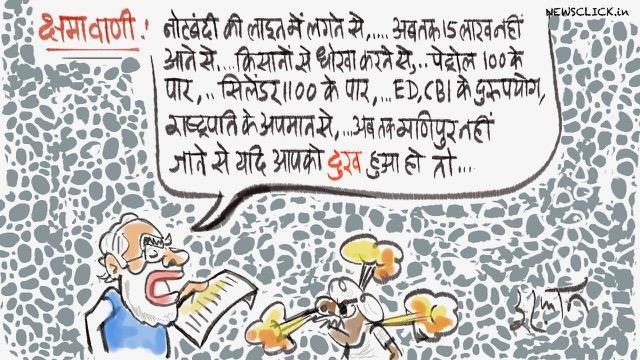 NEWSCLICK.in
क्षमावाणी!
नोटबंदी की लाइन में लगने से,.... अबतक 15 लाख नहीं
आने से.... किसानों से धोखा करने से,.. पेट्रोल 100 के
पार,.. सिलेंडर 1100 के पार,... ED,CBI के दुरुपयोग,
राष्ट्रपति के अपमान से,... अबतक मणिपुर नहीं
जाने से यदि आपको दुख हुआ हो तो...